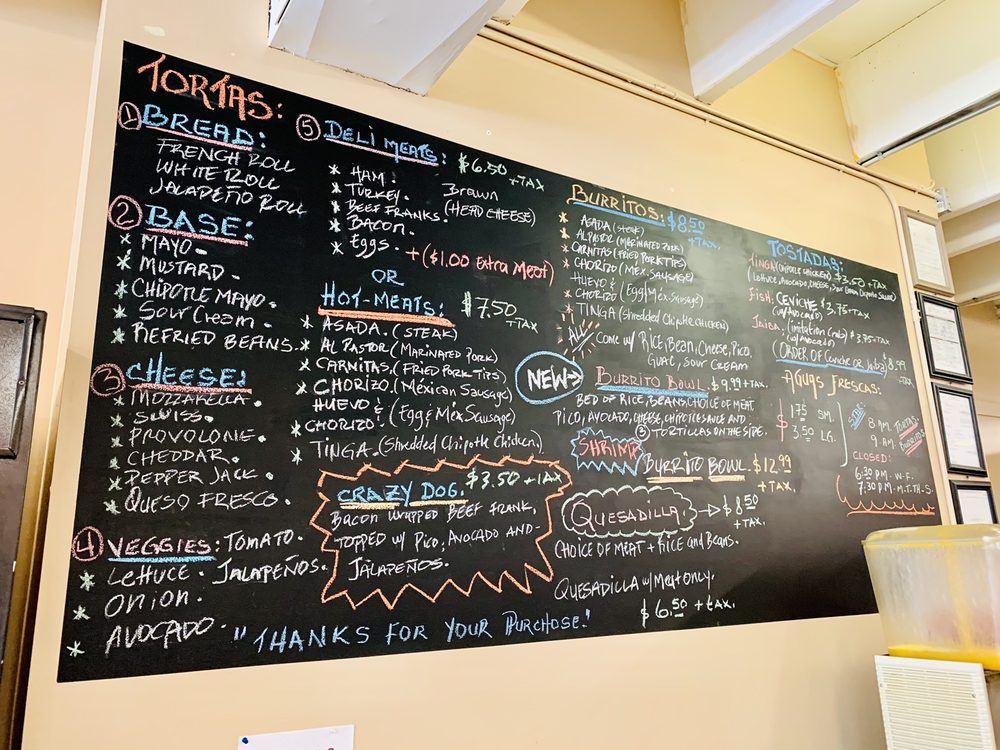 TORTAS:
① BREAD:
FRENCH ROLL
WHITE ROLL
JALAPEÑO ROLL
② BASE:
* MAYO.
* MUSTARD.
* CHIPOTLE MAYO.
* SOUR CREAM.
* REFRIED BEANS.
③ CHEESE:
* MOZZARELLA
* SWISS.
* PROVOLONE.
* CHEDDAR.
* PEPPER JACK.
* QUESO FRESCO.
④ VEGGIES: TOMATO.
* LETTUCE. JALAPEÑOS.
* ONION.
* AVOCADO.
⑤ DELI MEATS: $6.50 +TAX
* HAM.
* TURKEY. Brawn
* BEEF FRANKS. (HEAD CHEESE)
* BACON.
* EGGS.
+($1.00 Extra Meat)
OR
HOT-MEATS: $7.50 +TAX
* ASADA. (STEAK)
* AL PASTOR (MARINATED PORK)
* CARNITAS. (FRIED PORK TIPS)
* CHORIZO (Méxican Sausage)
HUEVO &
* CHORIZO. (Egg & Méx Sausage)
* TINGA (Shredded Chipotle Chicken)
CRAZY DOG. $3.50 +TAX
BACON WRAPPED BEEF FRANK,
TOPPED w/ PICO, AVOCADO AND
JALAPEÑOS.
"THANKS FOR YOUR PURCHOSE!"
BURRITOS: $8.50 +TAX.
* ASADA (STEAK)
* AL PASTOR (MARINATED PORK)
* CARNITAS (FRIED PORK TIPS)
* CHORIZO (MÉX. SAUSAGE)
HUEVO &
* CHORIZO (Egg/Méx Sausage)
* TINGA (Shredded Chipotle CHICKEN)
ALL
COME w/ RICE, BEAN, CHEESE, PICO,
GUAC, SOUR CREAM
NEW→
BURRITO BOWL. $9.99 +TAX.
BED OF RICE, BEANS, CHOICE OF MEAT
PICO, AVOCADO, CHEESE, CHIPOTLE SAUCE AND
③ TORTILLAS ON THE SIDE.
SHRIMP BURRITO BOWL. $12.99
+TAX.
QUESADILLA → $8.50
+TAX.
CHOICE OF MEAT + RICE AND BEANS.
QUESADILLA w/ MEAT ONLY.
$6.50 + tax.
TOSTADAS:
TINGA (CHIPOTLE CHICKEN) $3.50 +TAX
(LETTUCE, AVOCADO, CHEESE, SOUR CREAM, CHIPOTLE SAUCE)
FISH: CEVICHE $3.75 +TAX
(w/ AVOCADO)
JAIBA. (imitation Crab) $3.75 +TAX
(w/ AVOCADO)
(ORDER OF Ceviche OR Jaiba) $8.99
+TAX.
AGUAS FRESCAS:
$ 1.75 SM.
$ 3.50 LG.
8 AM. TORTAS
9 AM.
CLOSED:
6:30 PM. W-F.
7:30 P.M. M.T.TH-S.